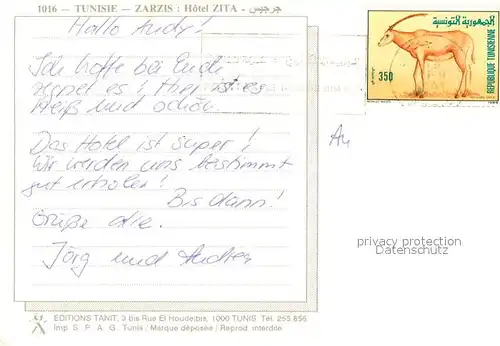 1016 - TUNISIE - ZARZIS : Hôtel ZITA - جرجيس
Hallo Andy!
Ich hoffe bei Euch
regnet es! Hier ist es
heiß und schön.
Das Hotel ist super!
Wir werden uns bestimmt
gut erholen!
Bis dann!
Grüße alle.
Jörg und
An
الجمهورية التونسية
REPUBLIQUE TUNISIENNE
350
privacy protection
Datenschutz
EDITIONS TANIT, 3 bis Rue El Houdeibia, 1000 TUNIS Tél. 255.856
Imp. S. P. A. G. Tunis / Marque déposée / Reprod. interdite